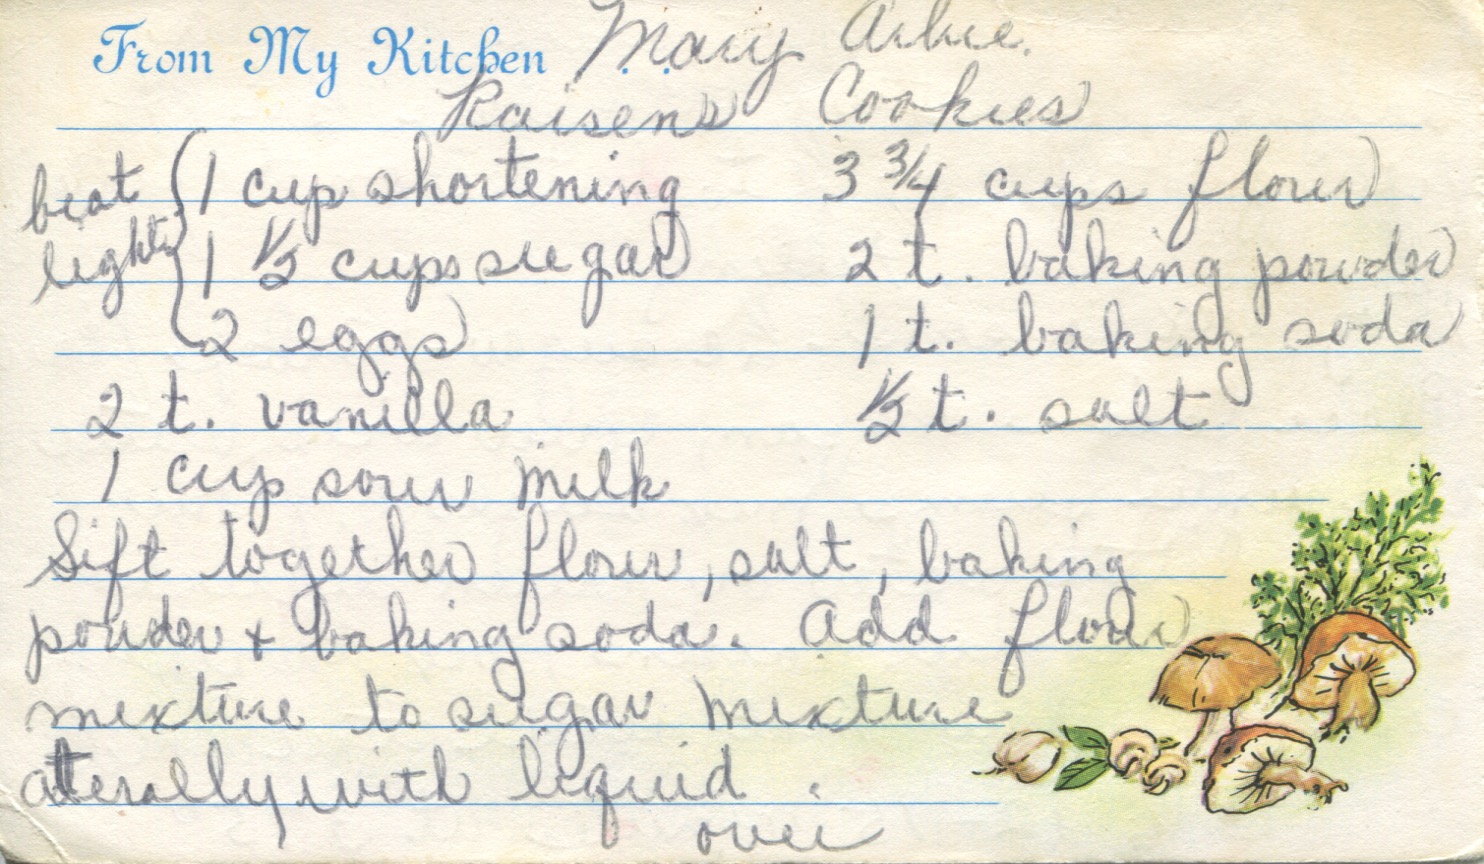 From My Kitchen Mary
Raisens Cookies
beat lightly
1 cup shortening
1 1/2 cups sugar
2 eggs
2 t. vanilla
1 cup sour milk
3 3/4 cups flour
2 t. baking powder
1 t. baking soda
1/2 t. salt
Sift together flour, salt, baking
powder + baking soda. Add flour
mixture to sugar mixture
with liquid.
over